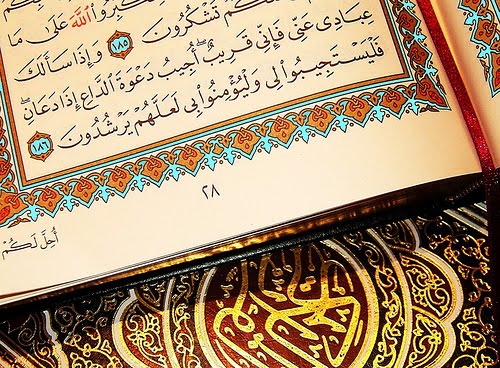 كَبِّرُوا۟ ٱللَّهَ عَلَىٰ مَا
كُمْ تَشْكُرُونَ ١٨٥ وَإِذَا سَأَلَكَ
عِبَادِى عَنِّى فَإِنِّى قَرِيبٌ ۖ أُجِيبُ دَعْوَةَ ٱلدَّاعِ إِذَا دَعَانِ ۖ
فَلْيَسْتَجِيبُوا۟ لِى وَلْيُؤْمِنُوا۟ بِى لَعَلَّهُمْ يَرْشُدُونَ ١٨٦
٢٨
أُحِلَّ لَكُمْ